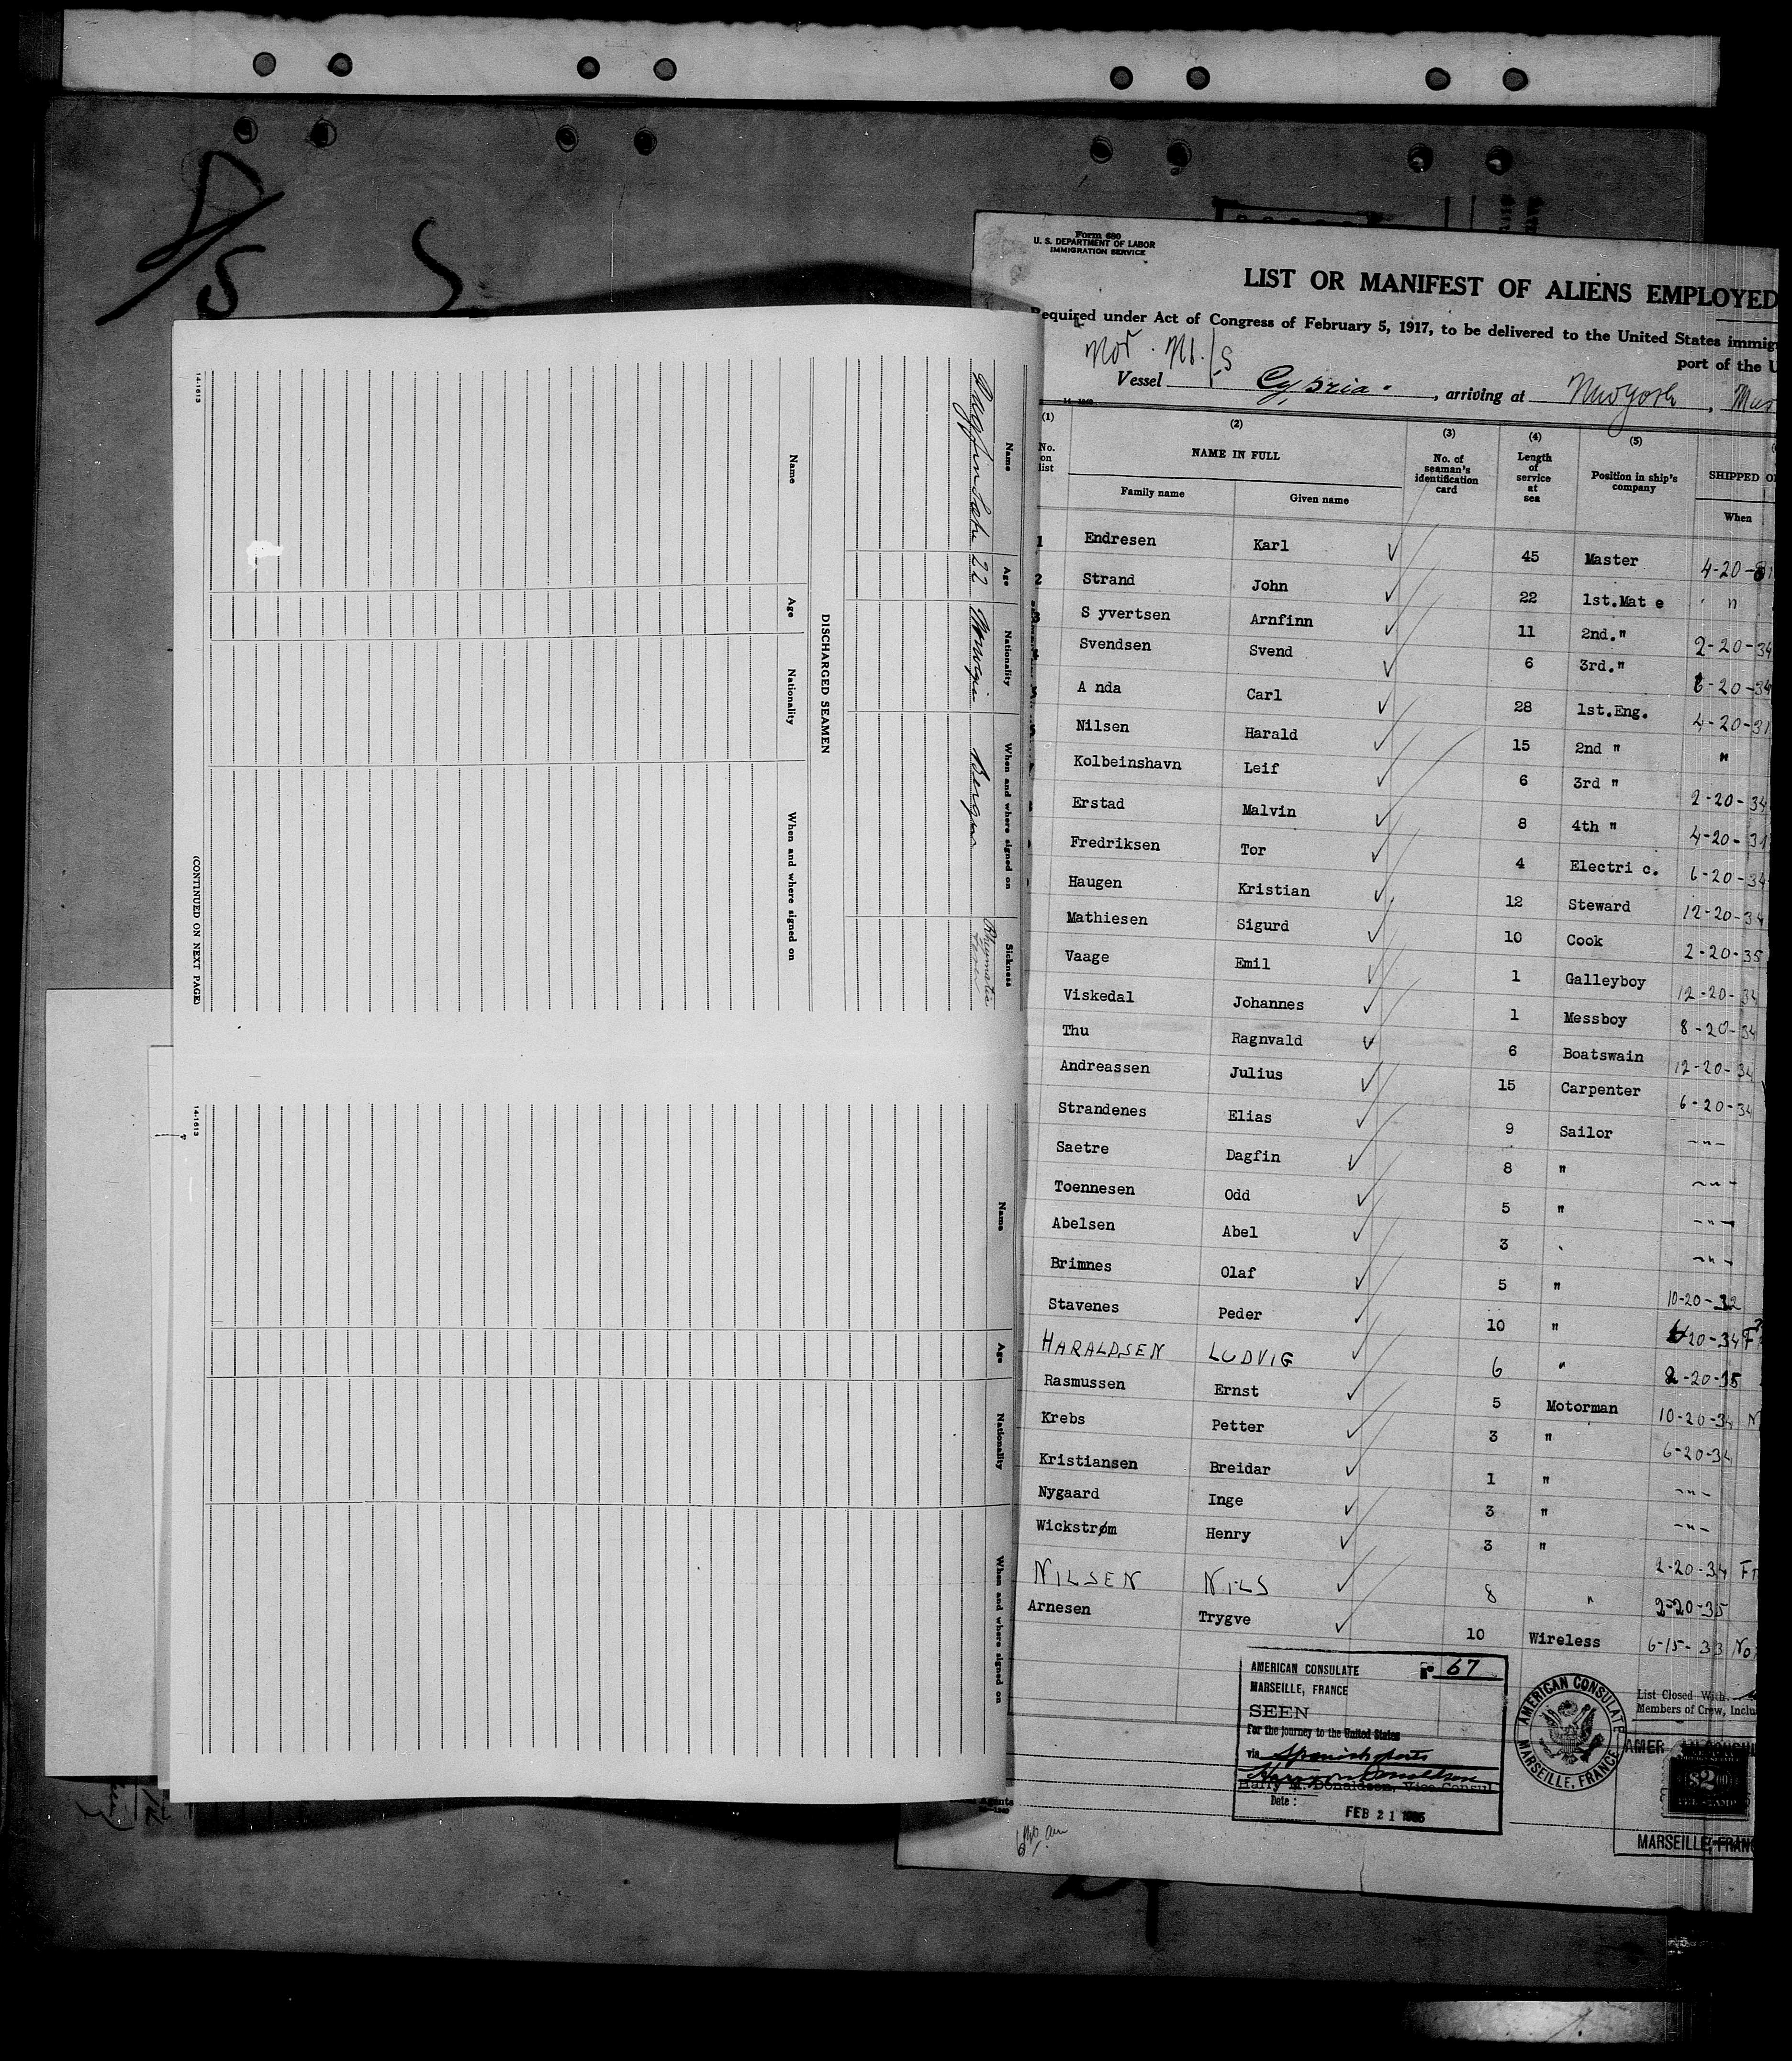 Form 680
U. S. DEPARTMENT OF LABOR
IMMIGRATION SERVICE
LIST OR MANIFEST OF ALIENS EMPLOYED
Required under Act of Congress of February 5, 1917, to be delivered to the United States immig
port of the U
Nor. M/S
Vessel Cypria. , arriving at New York ,
(1) (2) (3) (4) (5)
No. on list NAME IN FULL No. of seaman's identification card Length of service at sea Position in ship's company SHIPPED O
Family name Given name When
1 Endresen Karl 45 Master 4-20-31
2 Strand John 22 1st.Mat e "
3 S yvertsen Arnfinn 11 2nd." 2-20-34
4 Svendsen Svend 6 3rd." 6-20-34
A nda Carl 28 1st.Eng. 4-20-31
Nilsen Harald 15 2nd " "
Kolbeinshavn Leif 6 3rd " 2-20-34
Erstad Malvin 8 4th " 4-20-31
Fredriksen Tor 4 Electri c. 6-20-34
Haugen Kristian 12 Steward 12-20-34
Mathiesen Sigurd 10 Cook 2-20-35
Vaage Emil 1 Galleyboy 12-20-34
Viskedal Johannes 1 Messboy 8-20-34
Thu Ragnvald 6 Boatswain 12-20-34
Andreassen Julius 15 Carpenter 6-20-34
Strandenes Elias 9 Sailor -"-
Saetre Dagfin 8 " -"-
Toennesen Odd 5 " -"-
Abelsen Abel 3 -"-
Brimnes Olaf 5 " 10-20-32
Stavenes Peder 10 " 20-34
HARALDSEN LUDVIG 6 " 2-20-35
Rasmussen Ernst 5 Motorman 10-20-34
Krebs Petter 3 " 6-20-34
Kristiansen Breidar 1 " -"-
Nygaard Inge 3 " -"-
Wickstrøm Henry 3 " 2-20-34
NILSEN NILS 8 " 2-20-35
Arnesen Trygve 10 Wireless 6-15-33 No
AMERICAN CONSULATE 67
MARSEILLE, FRANCE
SEEN
For the journey to the United States
via Spanish ports
Harry M. Donaldson, Vice Consul
Date :
FEB 21 1935
AMERICAN CONSULATE
MARSEILLE, FRANCE
List Closed With
Members of Crew, Inclu
AMER
$2
MARSEILLE, FRANC
Name Age Nationality When and where signed on Sickness
Dagfin Sætre 22 Norwegian Bergen
DISCHARGED SEAMEN
Name Age Nationality When and where signed on
14-1613
(CONTINUED ON NEXT PAGE)
Name Age Nationality When and where signed on
14-1613